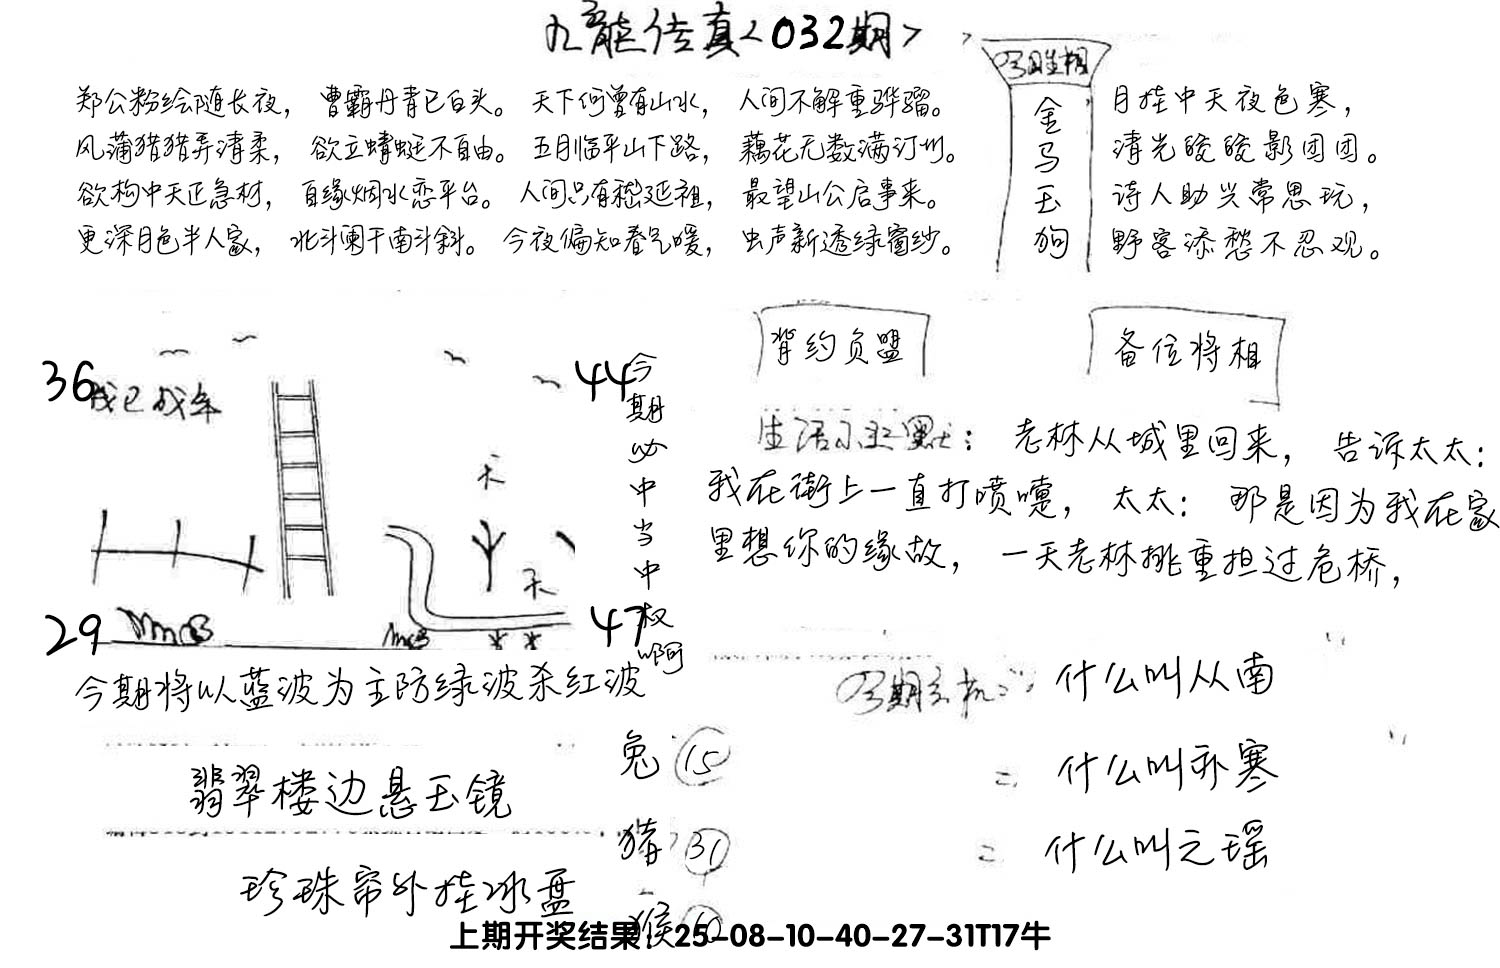 九龙传真<032期>
郑公粉绘随长夜， 曹霸丹青已白头。 天下何曾有山水， 人间不解重骅骝。
风蒲猎猎弄清柔， 欲立蜻蜓不自由。 五月临平山下路， 藕花无数满汀州。
欲构中天正急材， 自缘烟水恋平台。 人间只有嵇延祖， 最望山公启事来。
更深月色半人家， 北斗阑干南斗斜。 今夜偏知春气暖， 虫声新透绿窗纱。
今日生相
金马玉狗
月挂中天夜色寒，
清光皎皎影团团。
诗人助兴常思玩，
野客添愁不忍观。
背约负盟
备位将相
36
44
天
天
29
47
今期必中当中权啊
今期将以蓝波为主防绿波杀红波
翡翠楼边悬玉镜
珍珠帘外挂冰盘
兔 15
猪 31
猴
生活小幽默： 老林从城里回来， 告诉太太：
我在街上一直打喷嚏， 太太： 那是因为我在家
里想你的缘故， 一天老林挑重担过危桥，
今期玄机： 什么叫从南
= 什么叫补寒
= 什么叫之瑶
上期开奖结果：25-08-10-40-27-31T17牛